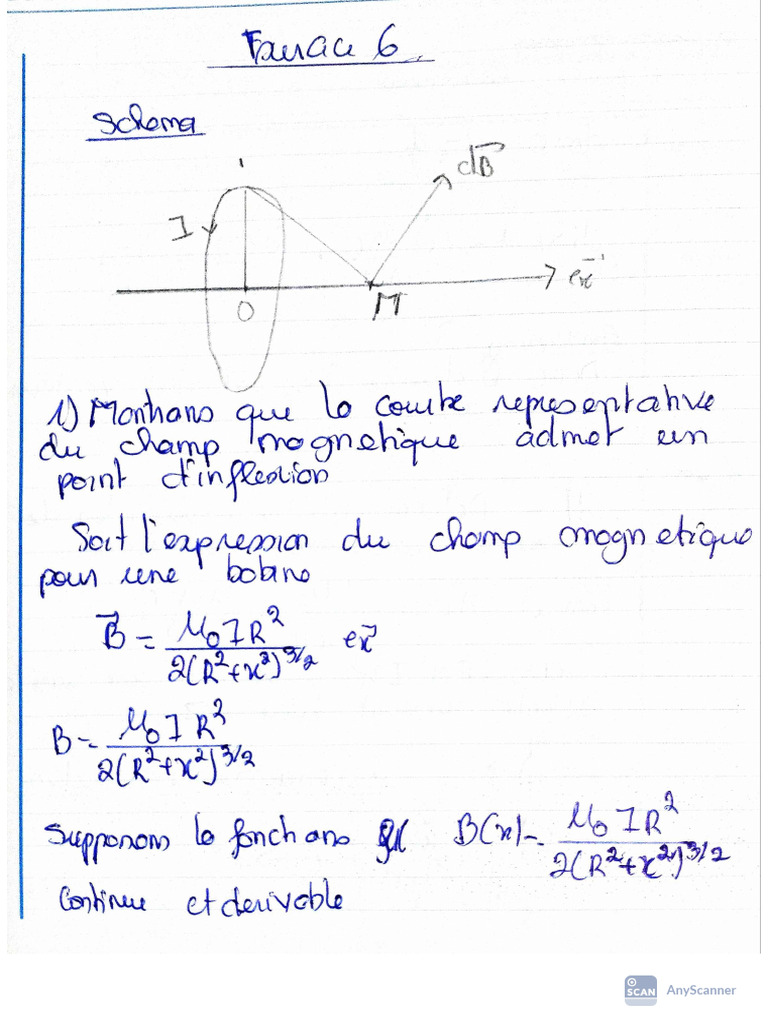 Exercice 6
Schema
I
dB
ex
O
M
1) Montrons que la courbe representative
du champ magnetique admet un
point d'inflexion
Soit l'expression du champ magnetique
pour une bobine
B = μ₀IR² / 2(R²+x²)^3/2 ex
B = μ₀IR² / 2(R²+x²)^3/2
Supposons la fonction B(x) = μ₀IR² / 2(R²+x²)^3/2
Continue et derivable
SCAN AnyScanner